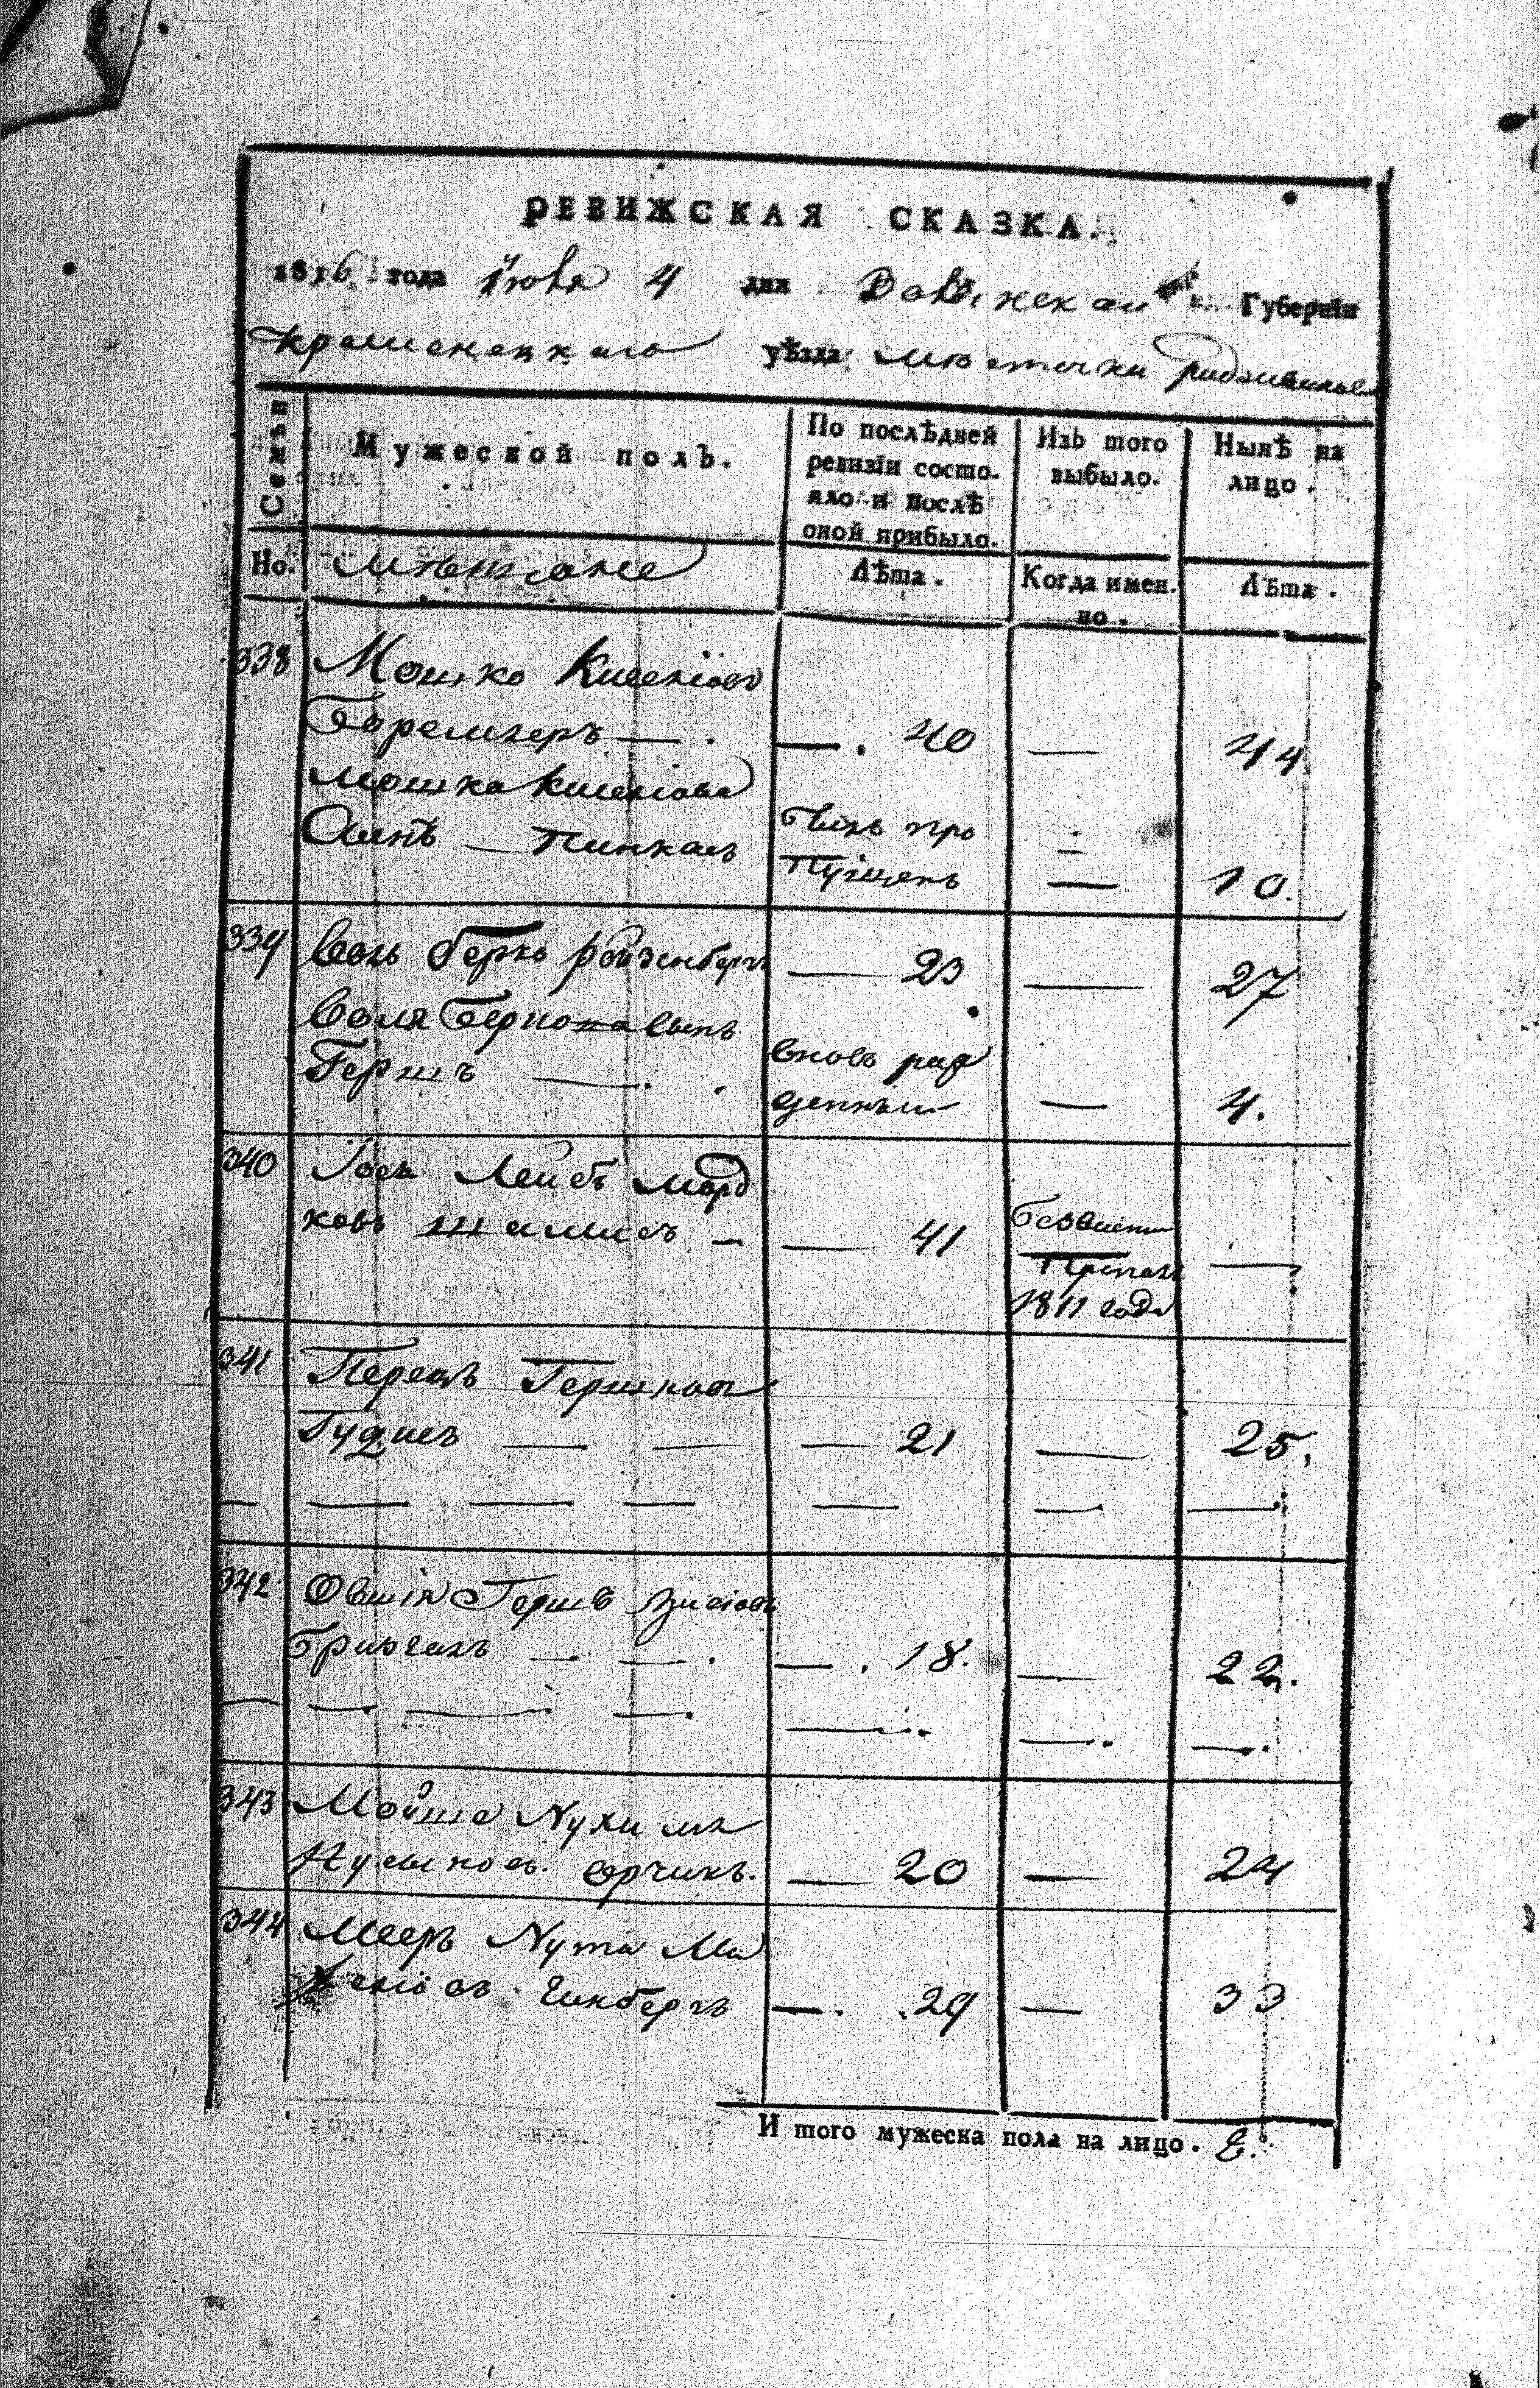 РЕВИЖСКАЯ СКАЗКА.
1816 года Июня 4 дня Волынской Губернїи
Кременецкаго уѣзда мѣстечки Радзивилова
Семьи
Мужеской полъ.
По послѣдней
ревизїи состо-
яло и послѣ
оной прибыло.
Изъ того
выбыло.
Нынѣ на
лицо.
Но. Мѣщане
Лѣта.
Когда имен-
но.
Лѣта.
338 Мошко Киселіовъ
Боремлеръ — . — . 40 — 44
Мошка Киселіова
Сынъ — Пинкасъ былъ про
пущенъ — 10.
339 Волъ Берко Ройзенбергъ — 23 — 27
Воля Беркова сынъ
Гершъ — . вновь раж
денный — 4.
340 Іось Лейбъ Морд
ковъ Шамисъ — — 41 —
безвисти
пропалъ
1811 года
341 Перецъ Гершковъ
Гудисъ — — — 21 — 25.
— — — — — — —
342 Овшія Гершъ Зисіовъ
— — . — . 18. — 22.
— — . — . — . — . — . — .
343 Мойше Нухимъ
— 20 — 24
344 Мееръ Нута
Гинбергъ — . 29 — 33
И того мужеска пола на лицо. 8.